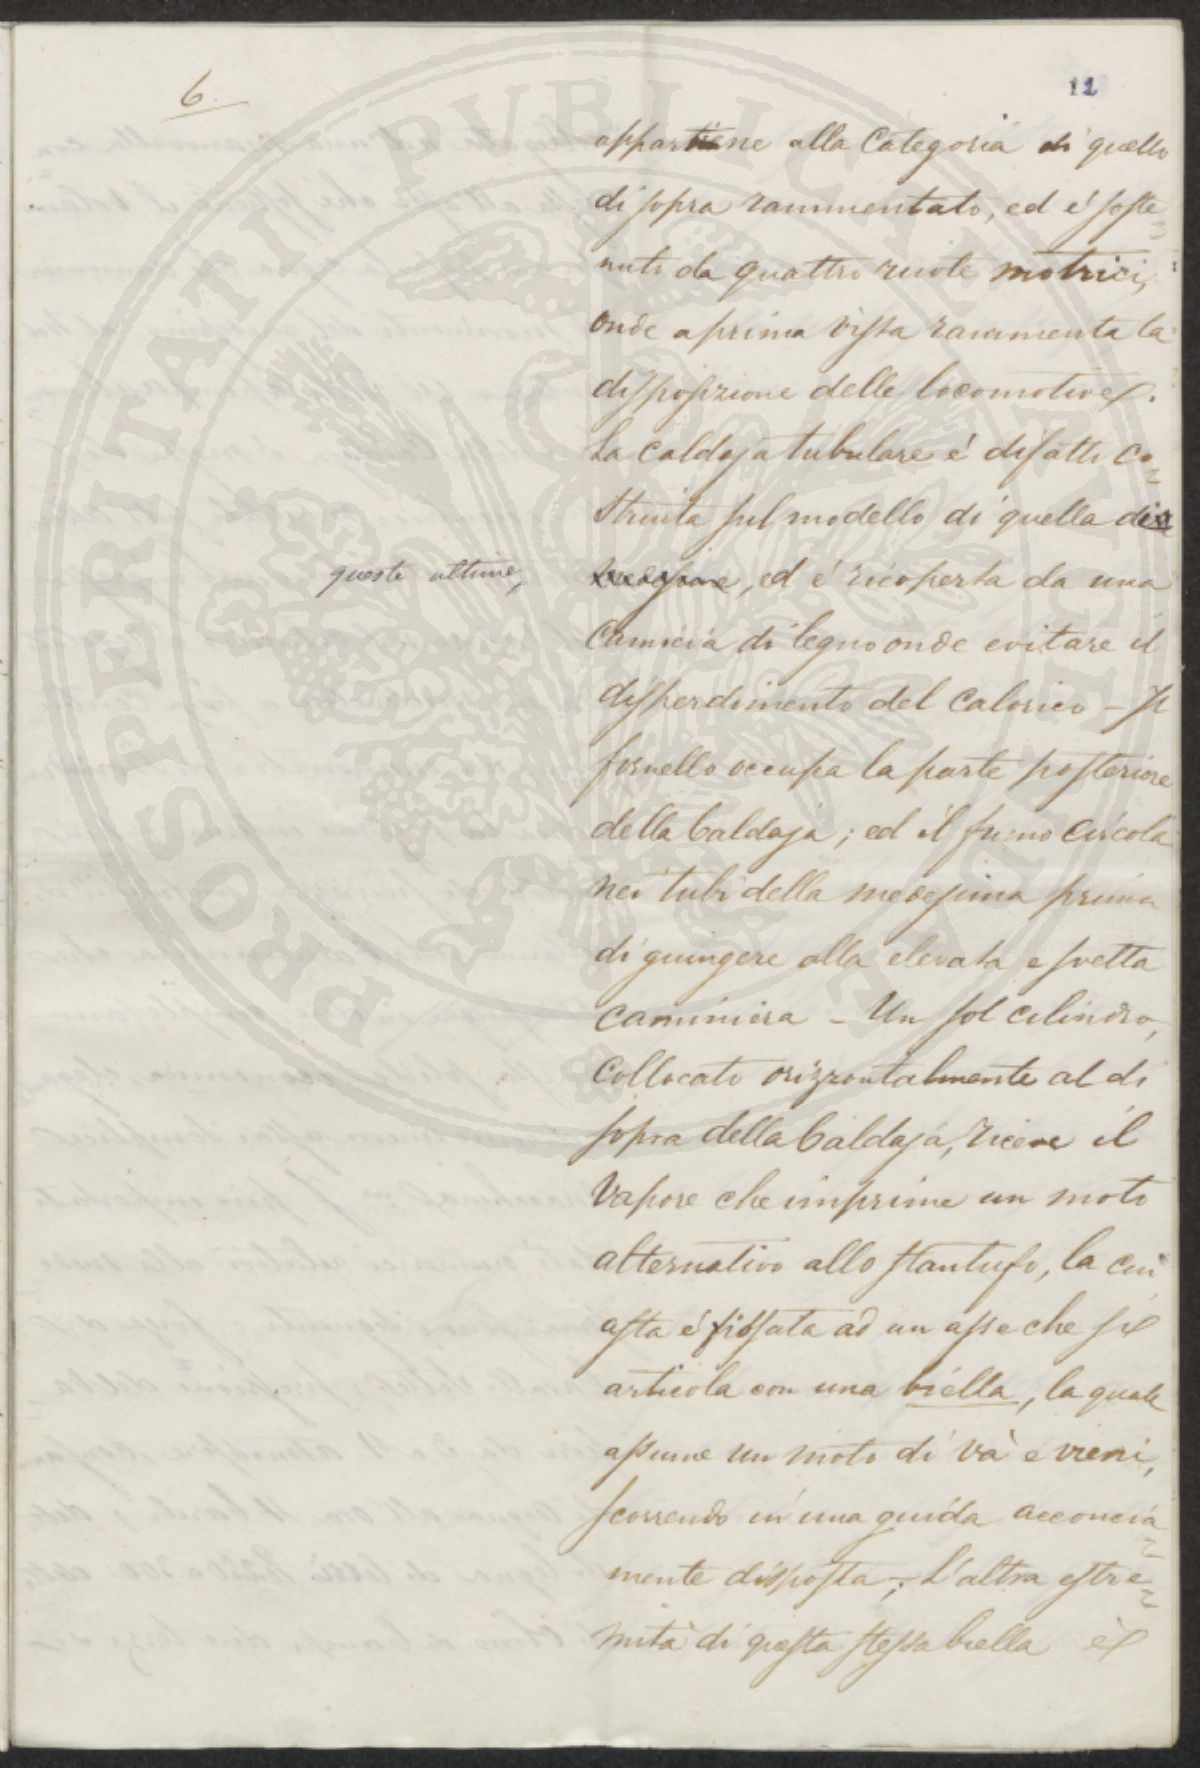 6.
11
appartiene alla Categoria di quello
di sopra rammentato, ed é soste=
nuto da quattro ruote motrici,
onde a prima vista rammenta la
disposizione delle locomotive.
La caldaja tubulare é difatti co=
struita sul modello di quella di
queste ultime,
medesime, ed é ricoperta da una
Camicia di legno onde evitare il
disperdimento del Calorico - Il
fornello occupa la parte posteriore
della Caldaja; ed il fumo circola
nei tubi della medesima prima
di giungere alla elevata e svelta
caminiera - Un sol cilindro,
collocato orizzontalmente al di
sopra della Caldaja, riceve il
Vapore che imprime un moto
alternativo allo stantufo, la cui
asta é fissata ad un asse che si
articola con una biella, la quale
assume un moto di và e vieni,
scorrendo in una guida acconcia=
mente disposta; - L'altra estre=
mità di questa stessa biella è
PROSPERITATI PUBLICAE AUGENDAE